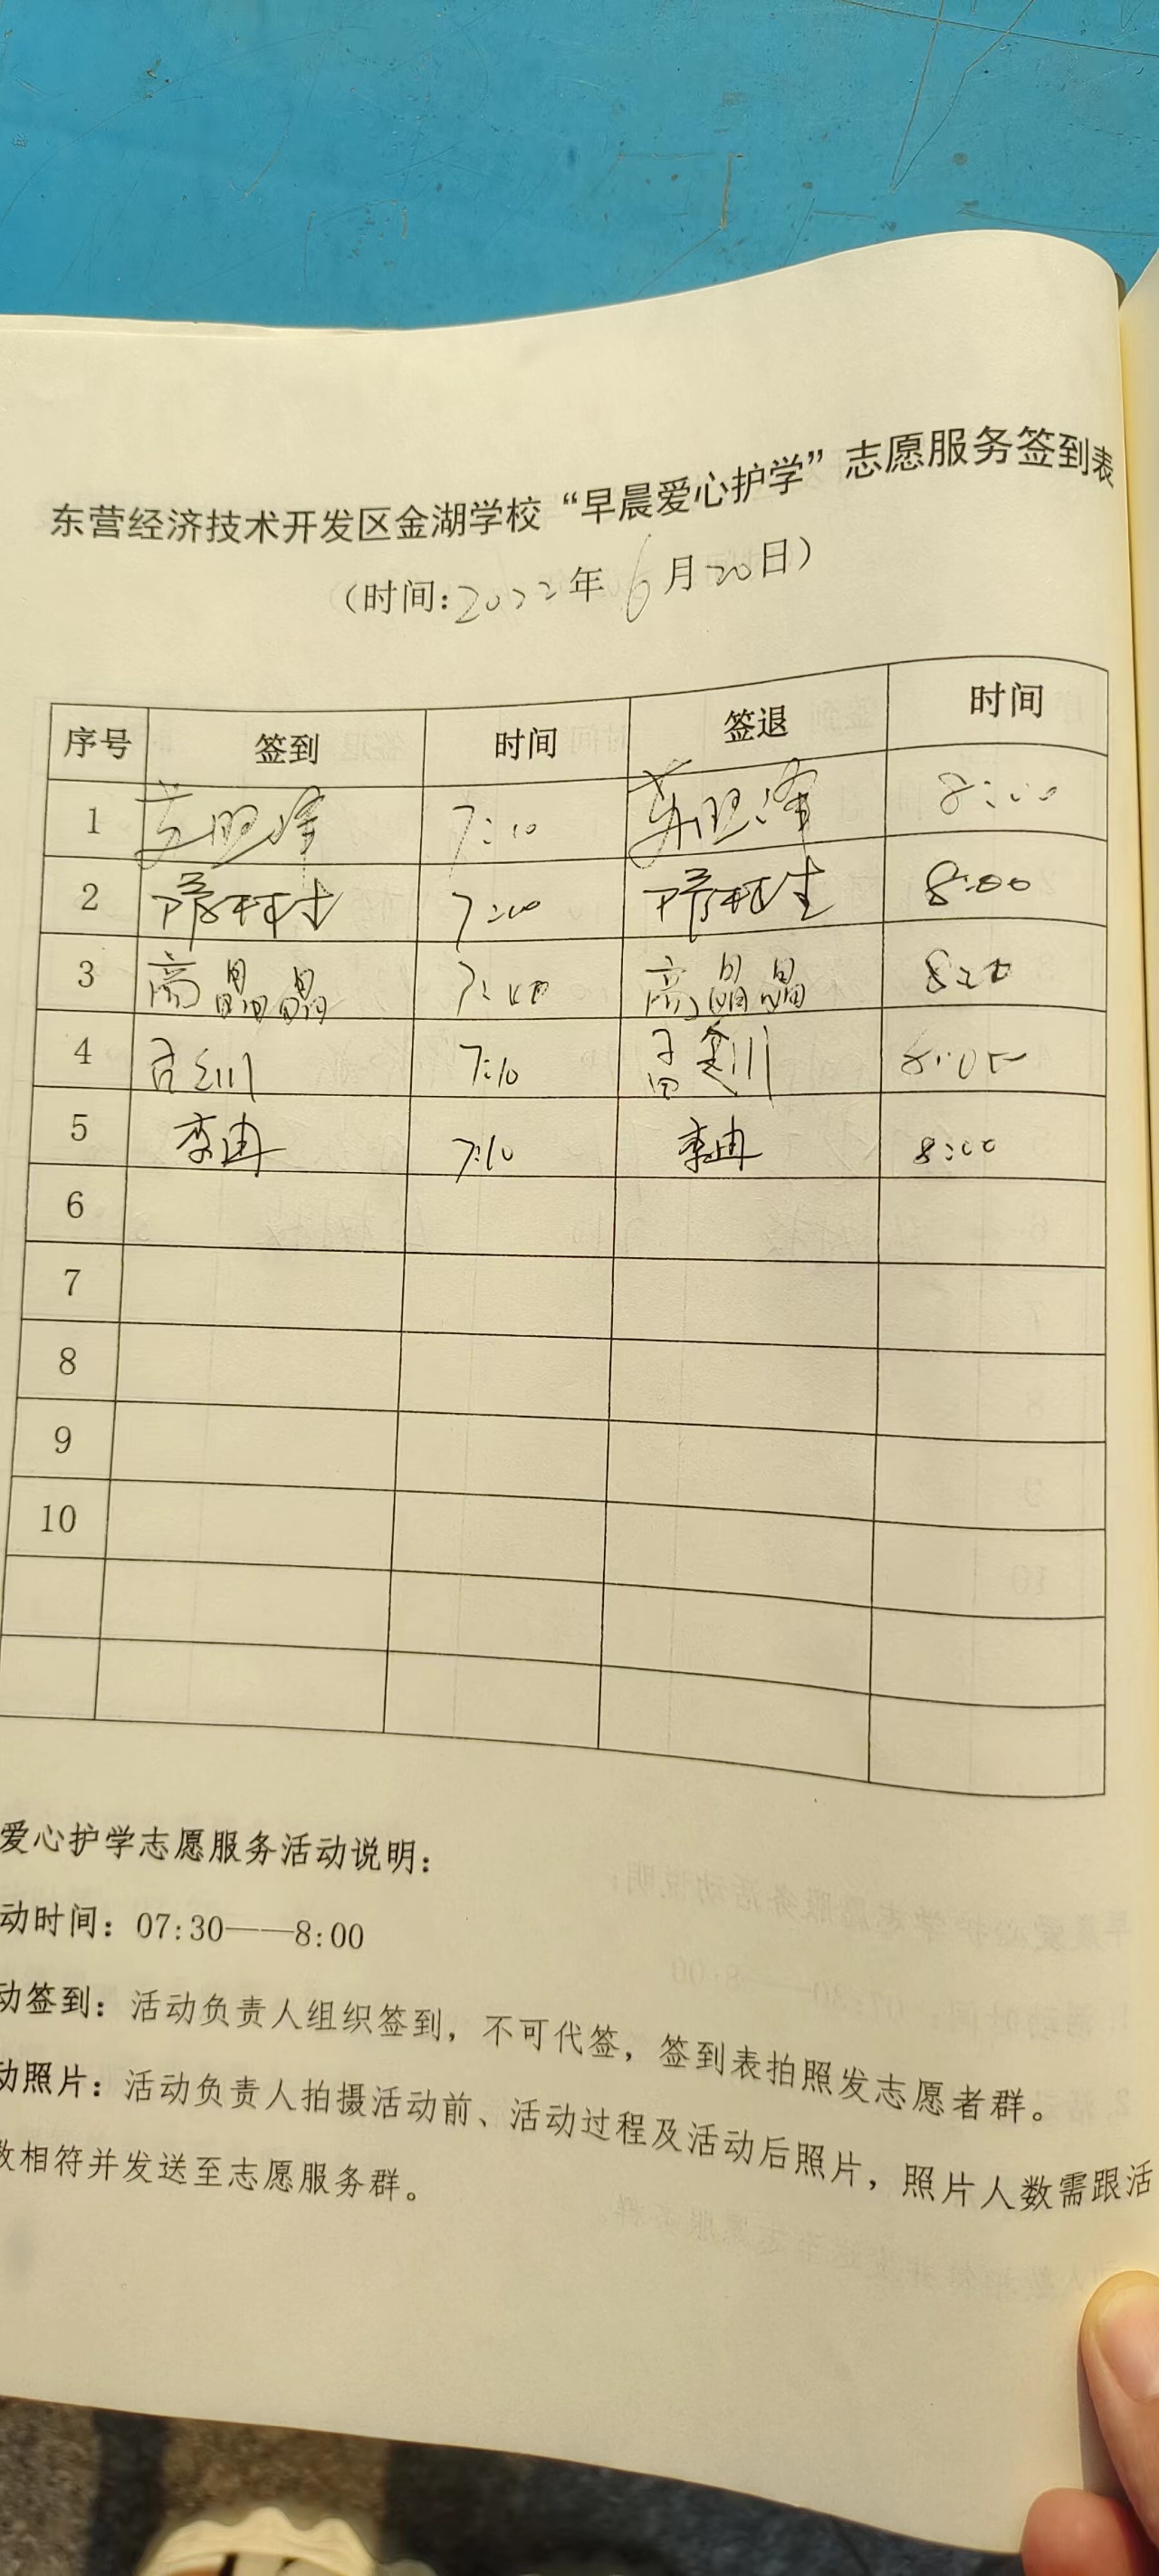 东营经济技术开发区金湖学校“早晨爱心护学”志愿服务签到表
(时间:2022年6月20日)
序号 签到 时间 签退 时间
1 7:10 8:00
2 7:10 8:00
3 高晶晶 7:10 高晶晶
4 7:10 8:05
5 李冉 7:10 李冉 8:00
6
7
8
9
10
爱心护学志愿服务活动说明:
动时间:07:30——8:00
动签到:活动负责人组织签到,不可代签,签到表拍照发志愿者群。
动照片:活动负责人拍摄活动前、活动过程及活动后照片,照片人数需跟活
数相符并发送至志愿服务群。